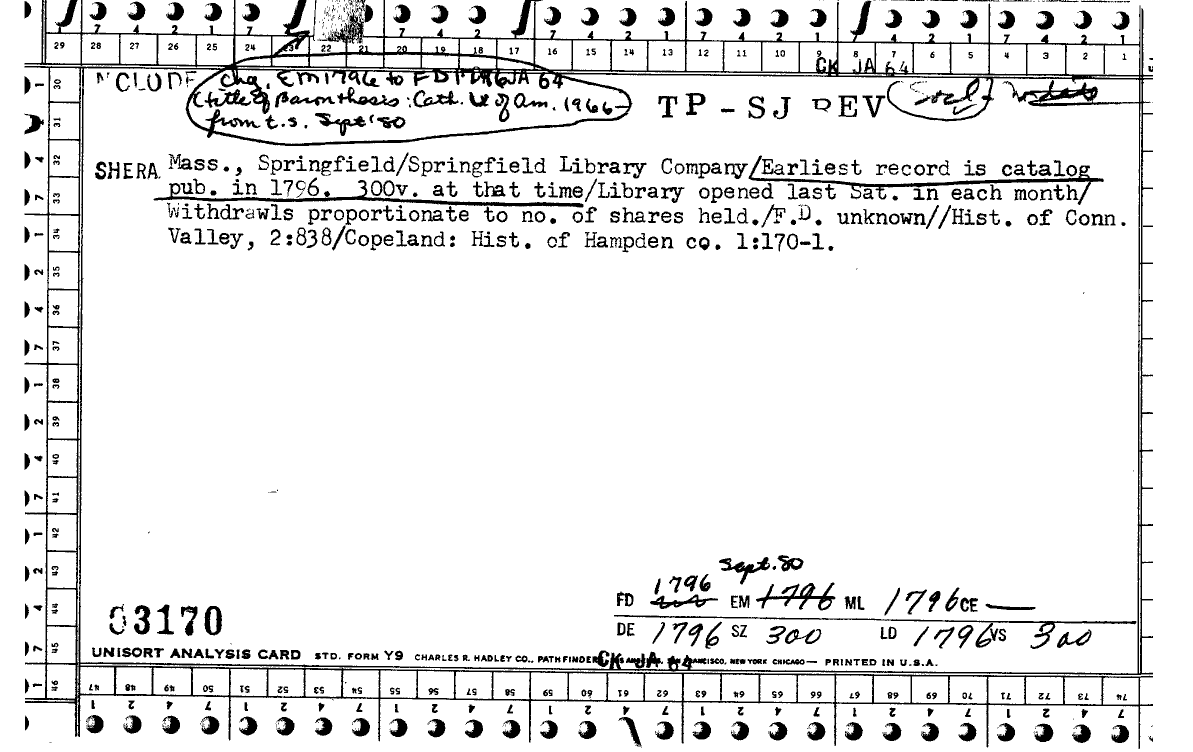 29 28 27 26 25 24 23 22 21 20 19 18 17 16 15 14 13 12 11 10 9 8 7 6 5 4 3 2 1
CK JA 64
NCLUDE Chg. EM1796 to FD1796JA 64
(title of Baron thesis: Cath. U of Am. 1966-
from t.s. Sept '80
TP - SJ REV
SHERA Mass., Springfield/Springfield Library Company/Earliest record is catalog
pub. in 1796. 300v. at that time/Library opened last Sat. in each month/
Withdrawls proportionate to no. of shares held./F.D. unknown//Hist. of Conn.
Valley, 2:838/Copeland: Hist. of Hampden co. 1:170-1.
30 31 32 33 34 35 36 37 38 39 40 41 42 43 44 45 46
Sept. 80
1796
FD EM 1796 ML 1796 CE —
DE 1796 SZ 300 LD 1796 VS 300
03170
UNISORT ANALYSIS CARD STD. FORM Y9 CHARLES R. HADLEY CO., PATHFINDERS CK JA 64 NEW YORK CHICAGO — PRINTED IN U.S.A.
47 48 49 50 51 52 53 54 55 56 57 58 59 60 61 62 63 64 65 66 67 68 69 70 71 72 73 74